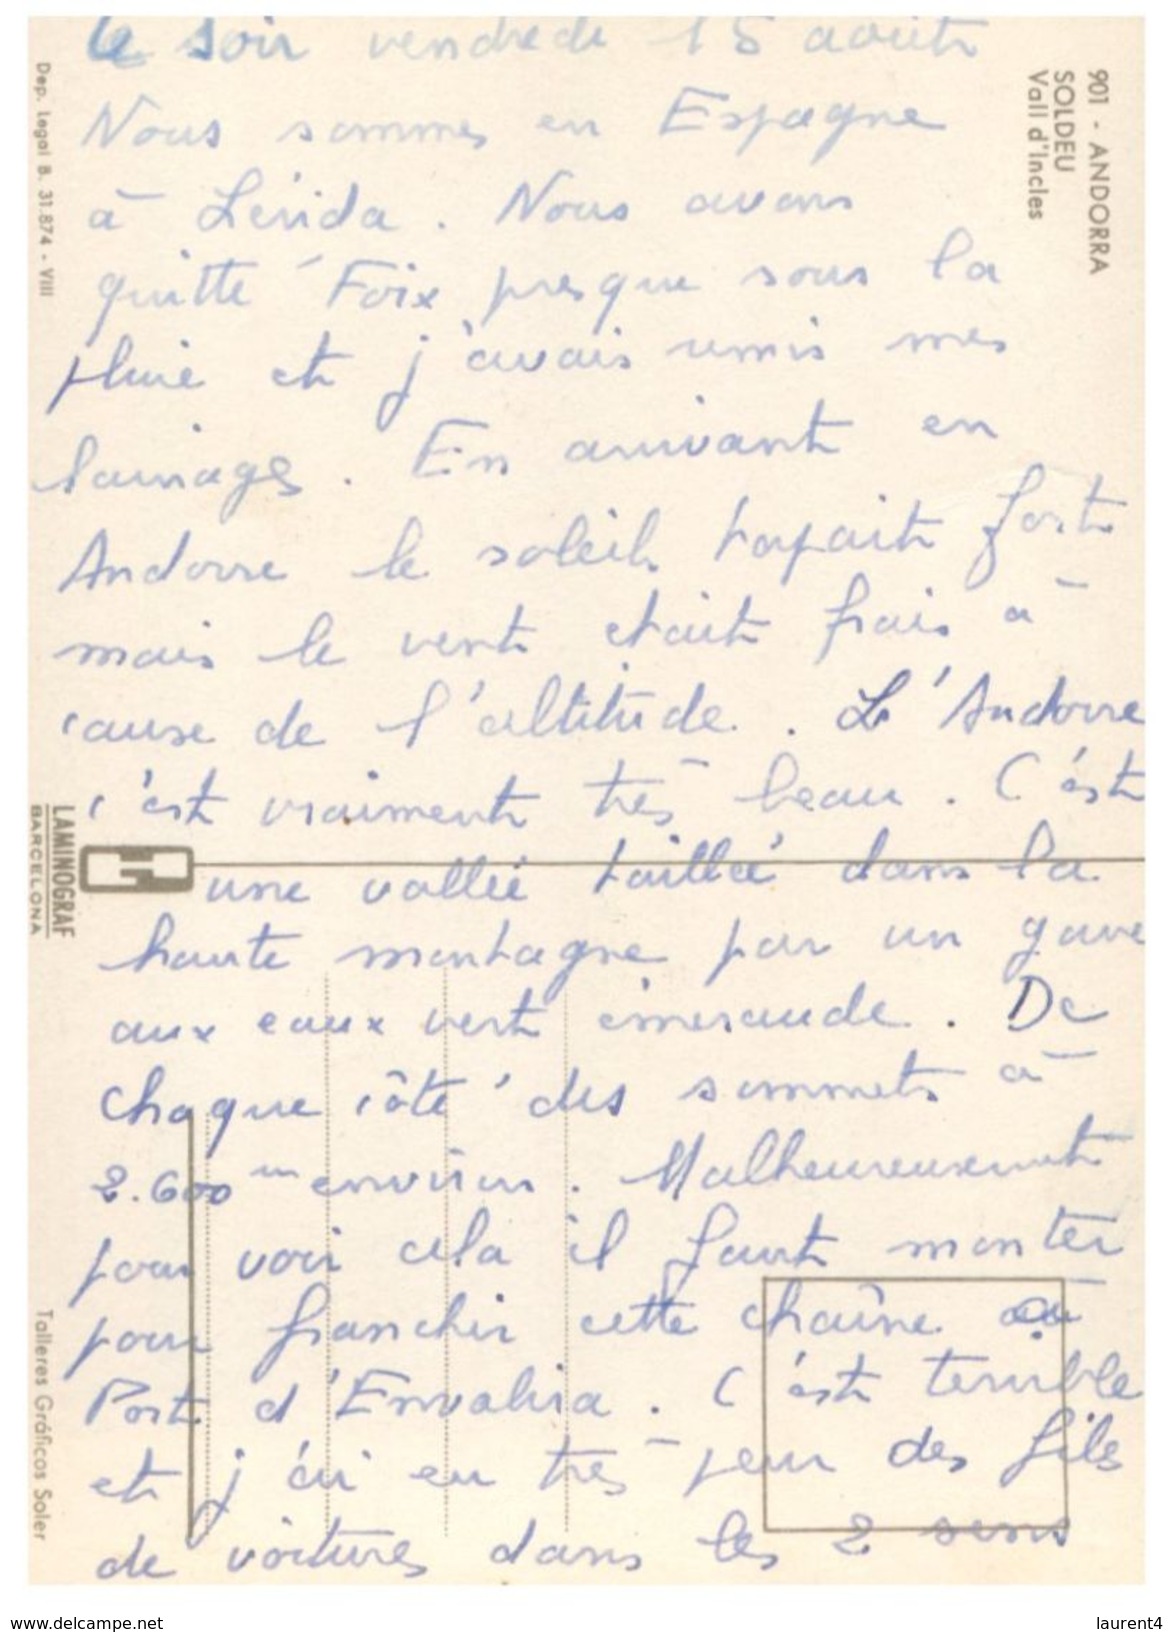 Le soir vendredi 15 août
Nous sommes en Espagne
à Lérida. Nous avons
quitté Foix presque sous la
pluie et j'avais remis mes
lainages. En arrivant en
Andorre le soleil tapait fort
mais le vent était frais à
cause de l'altitude. L'Andorre
c'est vraiment très beau. C'est
une vallée taillée dans la
haute montagne par un gave
aux eaux vert émeraude. De
chaque côté des sommets à
2.600 m environ. Malheureusement
pour voir cela il faut monter
pour franchir cette chaîne au
Port d'Envalira. C'est terrible
et j'ai eu très peur des files
de voitures dans les 2 sens
901 - ANDORRA
SOLDEU
Vall d'Incles
Dep. Legal B. 31.874 - VIII
LAMINOGRAF
BARCELONA
Talleres Gráficos Soler
www.delcampe.net
laurent4